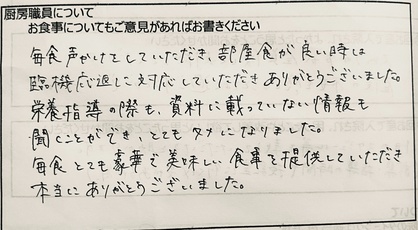 厨房職員について
お食事についてもご意見があればお書きください
毎食声かけをしていただき、部屋食が良い時は
臨機応変に対応していただきありがとうございました。
栄養指導の際も、資料に載っていない情報も
聞くことができ、とてもタメになりました。
毎食とても豪華で美味しい食事を提供していただき
本当にありがとうございました。